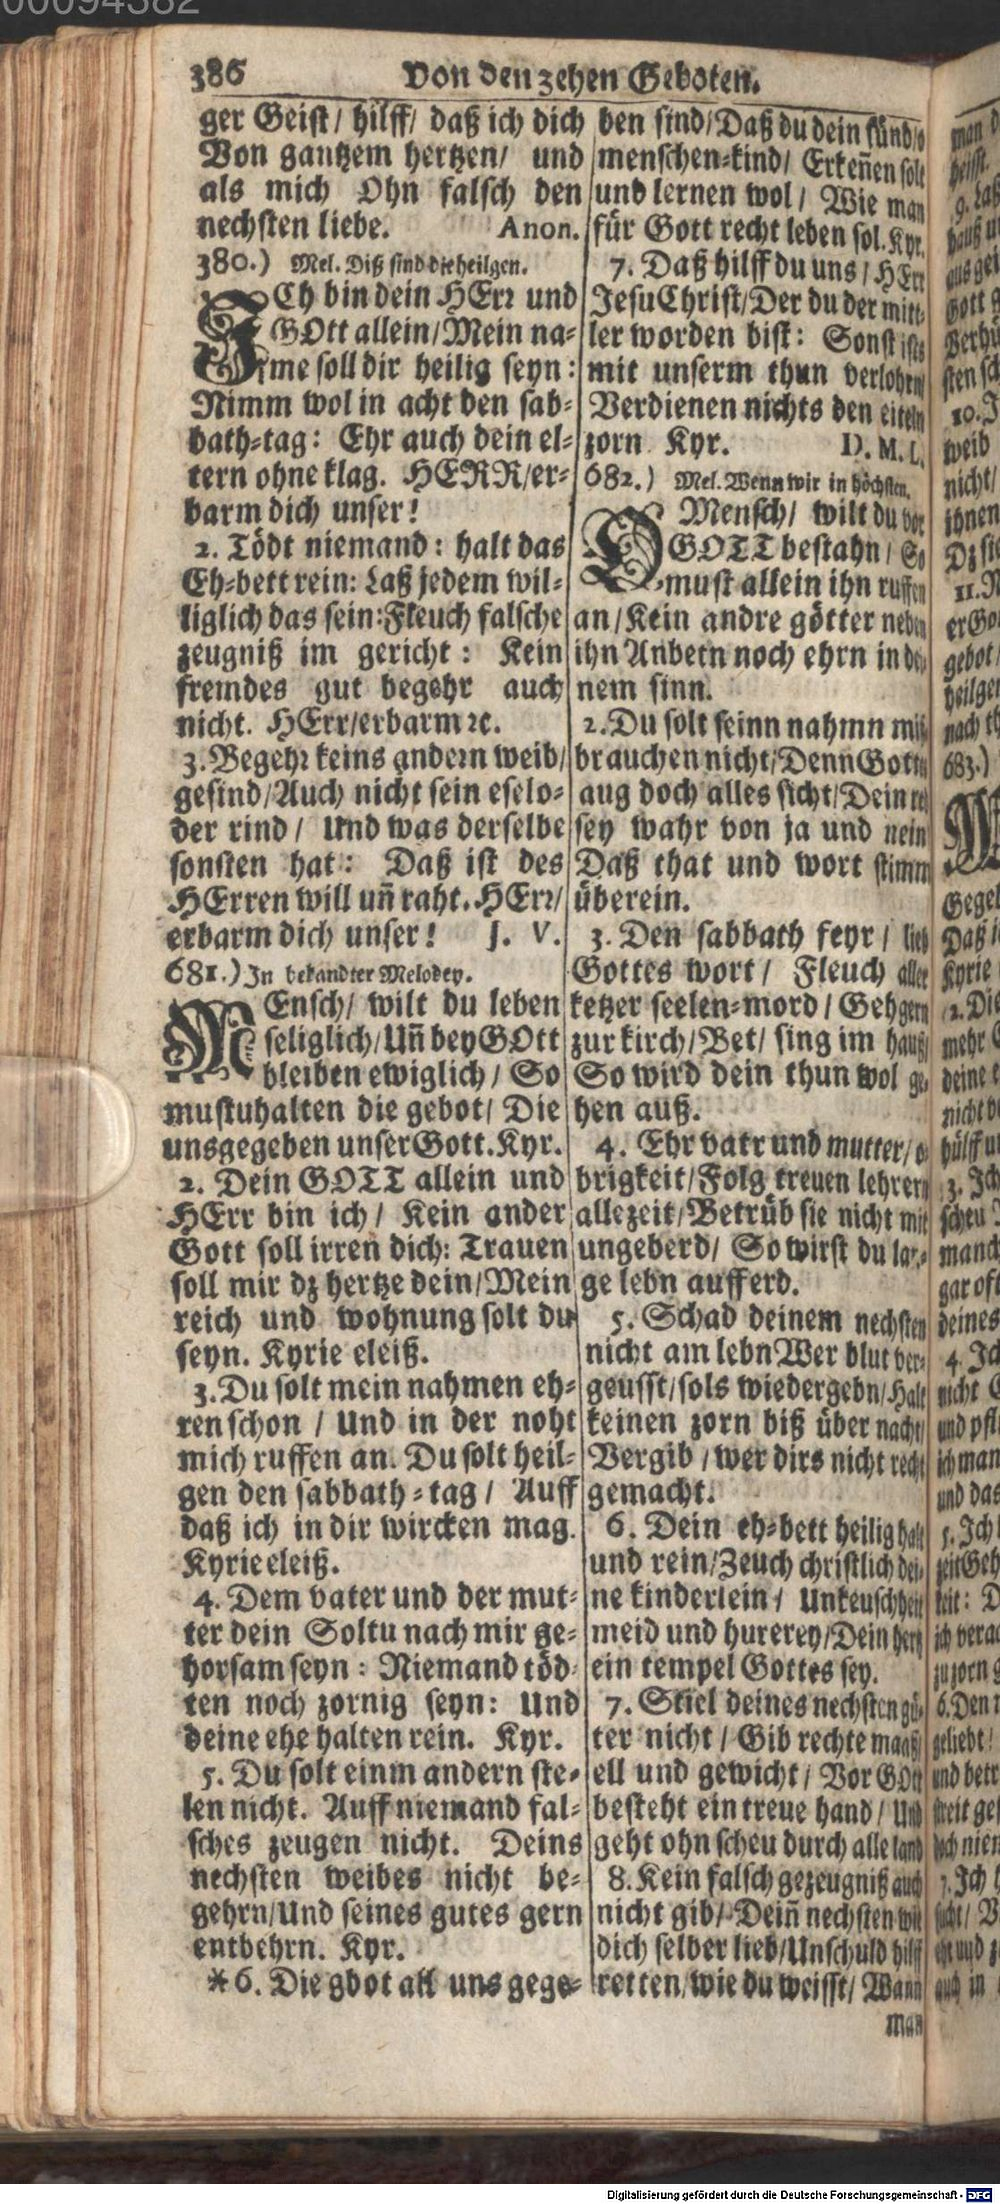 00094382
386 Von den zehen Geboten.
ger Geist/ hilff/ daß ich dich
Von gantzem hertzen/ und
als mich Ohn falsch den
nechsten liebe. Anon.
380.) Mel. Diß sind die heilgen.
ICh bin dein HErr und
GOtt allein/Mein na-
me soll dir heilig seyn:
Nimm wol in acht den sab-
bath-tag: Ehr auch dein el-
tern ohne klag. HERR/er-
barm dich unser!
2. Tödt niemand: halt das
Eh-bett rein: Laß jedem wil-
liglich das sein: Fleuch falsche
zeugniß im gericht: Kein
fremdes gut begehr auch
nicht. HErr/erbarm ꝛc.
3. Begehr keins andern weib/
gesind/Auch nicht sein eselo-
der rind/ Und was derselbe
sonsten hat: Daß ist des
HErren will uñ raht. HErr/
erbarm dich unser! J. V.
681.) In bekandter Melodey.
MEnsch/ wilt du leben
seliglich/Uñ bey GOtt
bleiben ewiglich/ So
mustu halten die gebot/ Die
uns gegeben unser Gott. Kyr.
2. Dein GOTT allein und
HErr bin ich/ Kein ander
Gott soll irren dich: Trauen
soll mir dz hertze dein/Mein
reich und wohnung solt du
seyn. Kyrie eleiß.
3. Du solt mein nahmen eh-
ren schon / Und in der noht
mich ruffen an. Du solt heil-
gen den sabbath-tag/ Auff
daß ich in dir wircken mag.
Kyrie eleiß.
4. Dem vater und der mut-
ter dein Soltu nach mir ge-
horsam seyn: Niemand töd-
ten noch zornig seyn: Und
deine ehe halten rein. Kyr.
5. Du solt einm andern ste-
len nicht. Auff niemand fal-
sches zeugen nicht. Deins
nechsten weibes nicht be-
gehrn/Und seines gutes gern
entbehrn. Kyr.
*6. Die gbot all uns gege-
ben sind/Daß du dein sünd/o
menschen-kind/ Erkeñen solt
und lernen wol/ Wie man
für Gott recht leben sol. Kyr.
7. Daß hilff du uns/ HErr
Jesu Christ/Der du der mitt-
ler worden bist: Sonst ists
mit unserm thun verlohrn/
Verdienen nichts den eiteln
zorn Kyr. D. M. L.
682.) Mel. Wenn wir in höchsten.
O Mensch/ wilt du vor
GOTT bestahn/ So
must allein ihn ruffen
an/Kein andre götter neben
ihn Anbetn noch ehrn in dei-
nem sinn.
2. Du solt seinn nahmn miß-
brauchen nicht/Denn Gotts
aug doch alles sicht/Dein red
sey wahr von ja und nein
Daß that und wort stimm
überein.
3. Den sabbath feyr/ lieb
Gottes wort/ Fleuch aller
ketzer seelen-mord/ Geh gern
zur kirch/Bet/ sing im hauß/
So wird dein thun wol ge-
hen auß.
4. Ehr vatr und mutter/o-
brigkeit/Folg treuen lehrern
allezeit/Betrüb sie nicht mit
ungeberd/ So wirst du lan-
ge lebn auff erd.
5. Schad deinem nechsten
nicht am lebn Wer blut ver-
geusst/sols wiedergebn/Halt
keinen zorn biß über nacht/
Vergib/wer dirs nicht recht
gemacht.
6. Dein eh-bett heilig halt
und rein/Zeuch christlich dei-
ne kinderlein/ Unkeuschheit
meid und hurerey/Dein hertz
ein tempel Gottes sey.
7. Stiel deines nechsten gü-
ter nicht/Gib rechte maaß/
ell und gewicht/ Vor GOtt
besteht ein treue hand/ Und
geht ohn scheu durch alle land
8. Kein falsch gezeugniß auch
nicht gib/ Deiñ nechsten wie
dich selber lieb/Unschuld hilff
retten/wie du weisst/ Wann
man
Digitalisierung gefördert durch die Deutsche Forschungsgemeinschaft - DFG